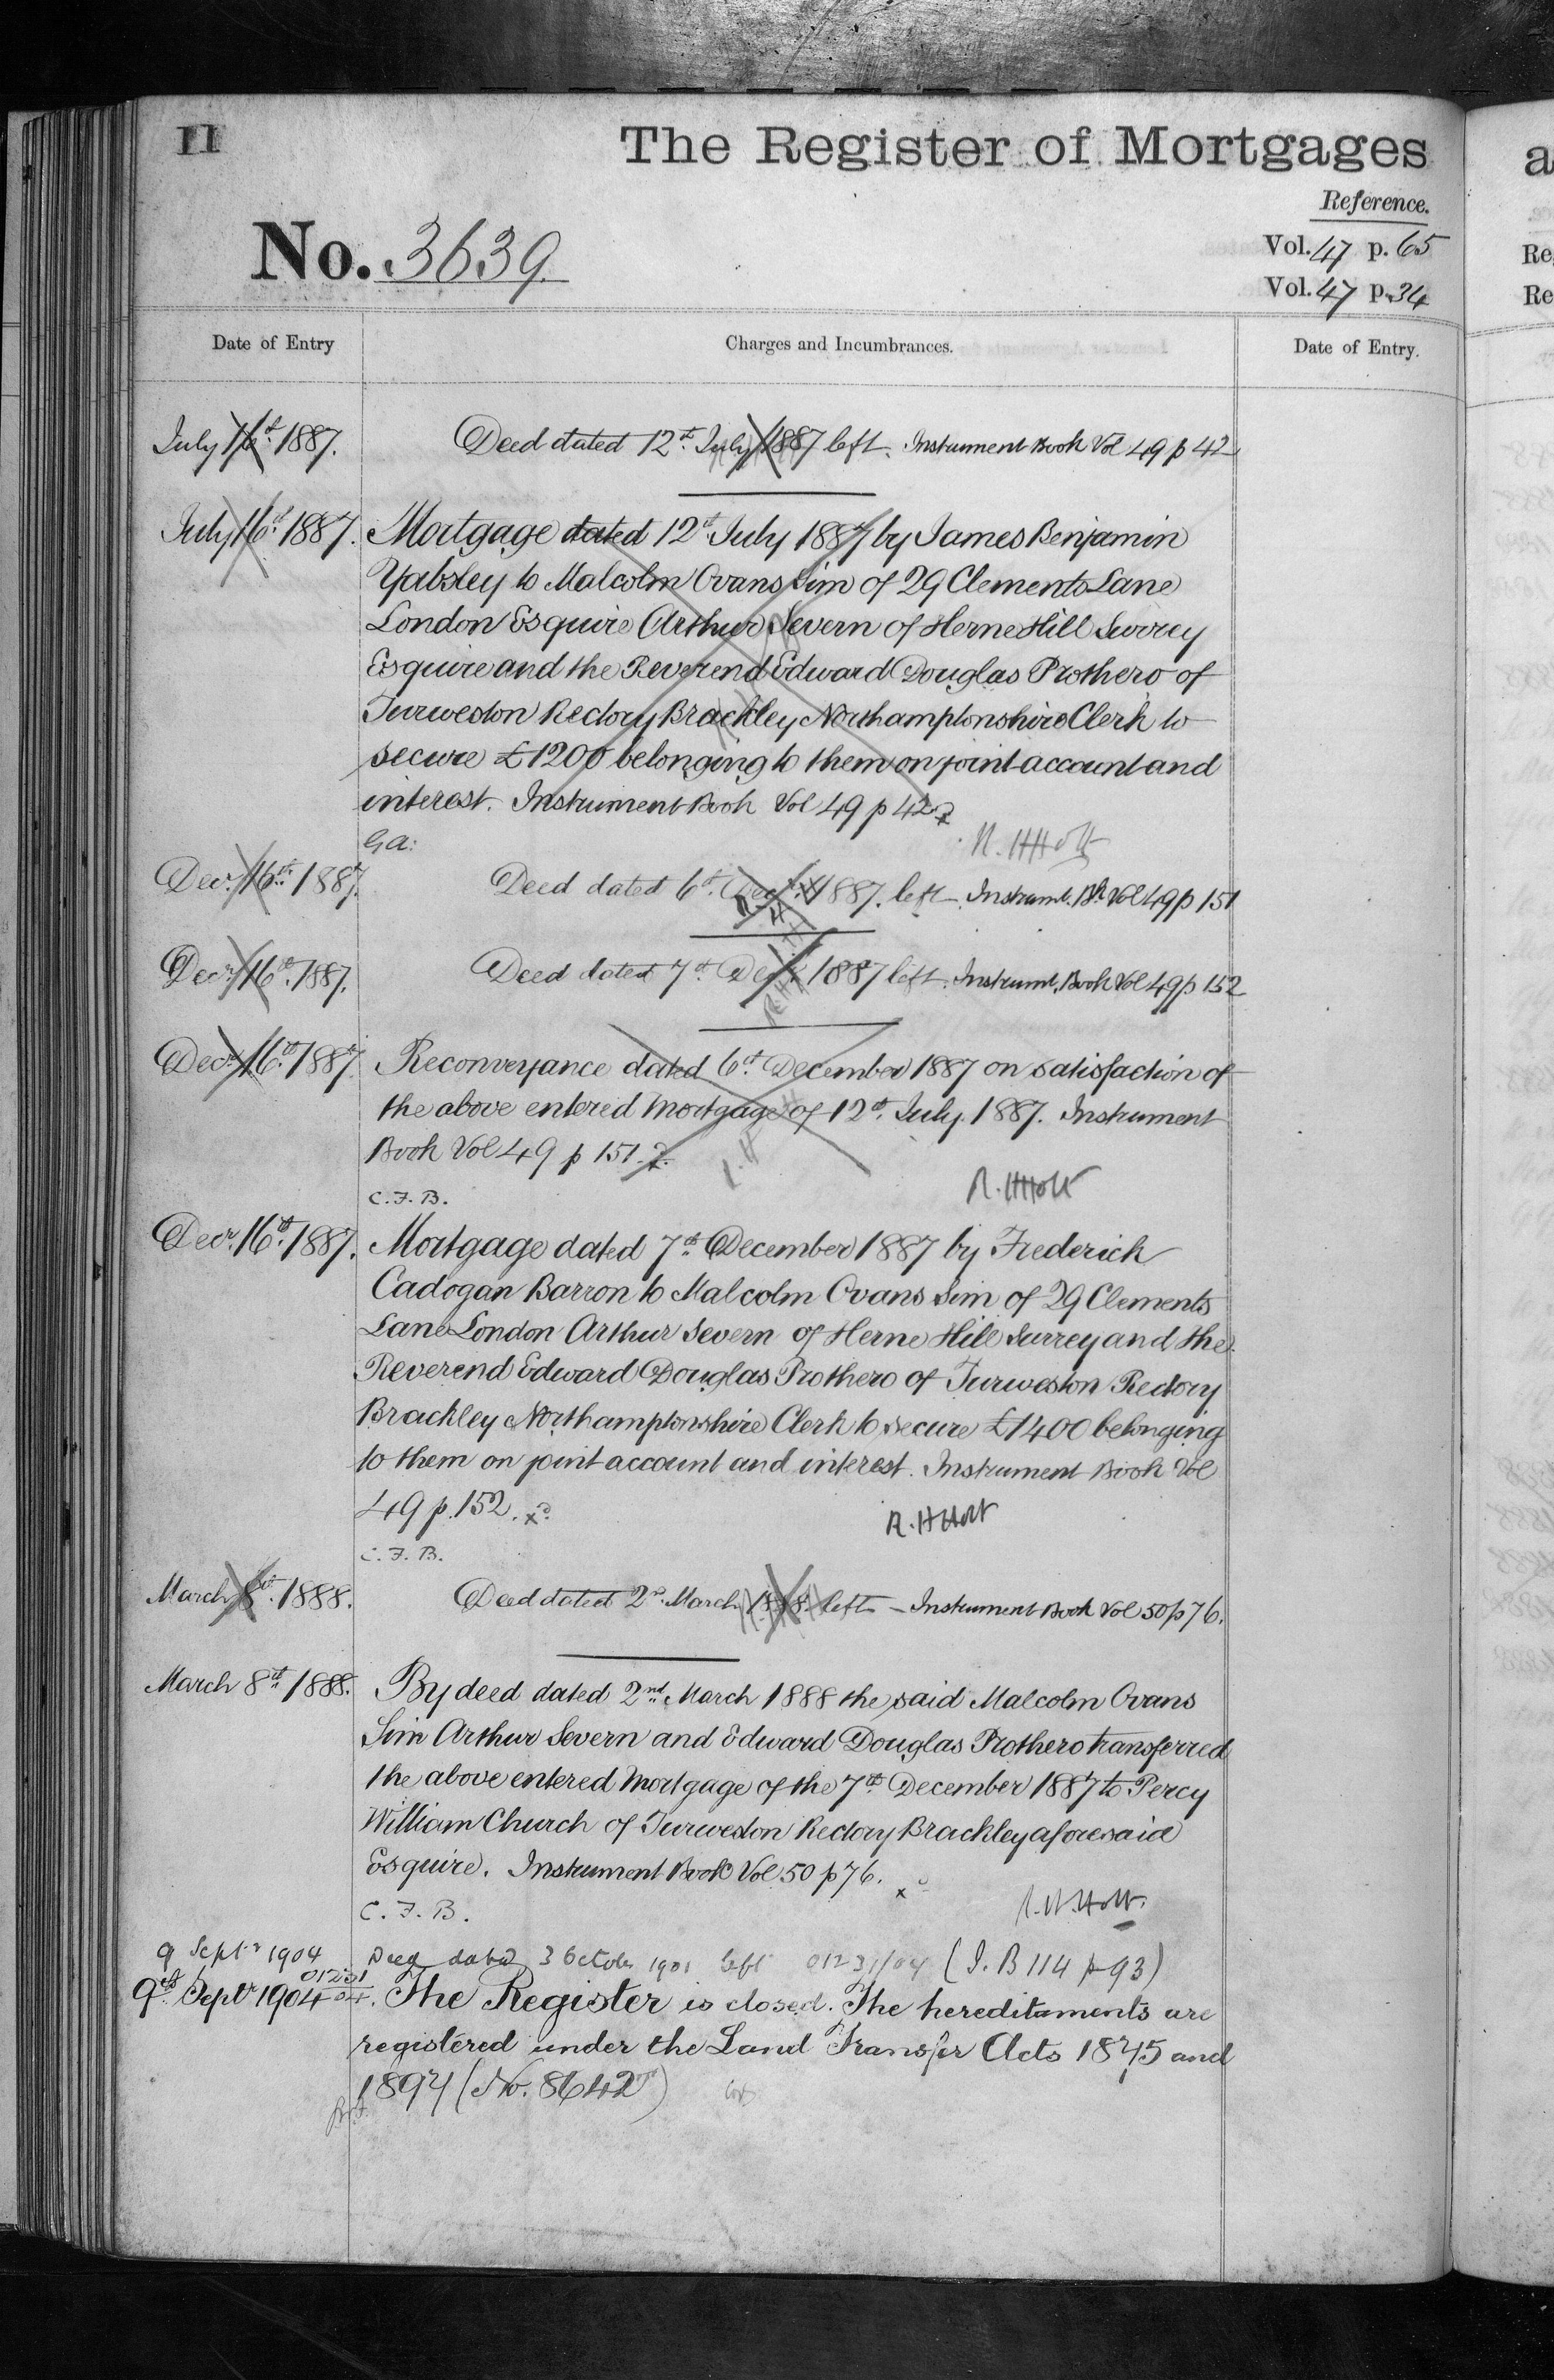 II
The Register of Mortgages
Reference.
No. 3639.
Vol. 47 p. 65
Vol. 47 p. 34
Date of Entry
Charges and Incumbrances.
Date of Entry.
July 16th 1887. Deed dated 12th July 1887 left. Instrument Book Vol 49 p 42
July 16th 1887. Mortgage dated 12th July 1887 by James Benjamin
Yabsley to Malcolm Ovans Sim of 29 Clements Lane
London Esquire Arthur Severn of Herne Hill Surrey
Esquire and the Reverend Edward Douglas Prothero of
Turweston Rectory Brackley Northamptonshire Clerk to
secure £1200 belonging to them on joint account and
interest. Instrument Book Vol 49 p 42
G A:
R. H Holt
Decr. 16th 1887. Deed dated 6th Decr. 1887. left. Instrumt. Bk Vol 49 p 151
Decr. 16th 1887. Deed dated 7th Decr. 1887 left. Instrumt. Book Vol 49 p 152
Decr. 16th 1887 Reconveyance dated 6th December 1887 on satisfaction of
the above entered Mortgage of 12th July 1887. Instrument
Book Vol 49 p 151.
C. F. B.
R. H Holt
Decr. 16th 1887. Mortgage dated 7th December 1887 by Frederick
Cadogan Barron to Malcolm Ovans Sim of 29 Clements
Lane London Arthur Severn of Herne Hill Surrey and the
Reverend Edward Douglas Prothero of Turweston Rectory
Brackley Northamptonshire Clerk to secure £1400 belonging
to them on joint account and interest. Instrument Book Vol
49 p. 152.
R. H Holt
C. F. B.
March 8th 1888. Deed dated 2nd March 1888 left - Instrument Book Vol 50 p 76.
March 8th 1888. By deed dated 2nd March 1888 the said Malcolm Ovans
Sim Arthur Severn and Edward Douglas Prothero transferred
the above entered Mortgage of the 7th December 1887 to Percy
William Church of Turweston Rectory Brackley aforesaid
Esquire. Instrument Book Vol 50 p 76.
C. F. B.
R. H. Holt.
9 Septr 1904 Deed dated 3 October 1901 left 01231/04 (I. B 114 p 93)
01231/04
9th Septr 1904. The Register is closed. The hereditaments are
registered under the Land Transfer Acts 1875 and
1897 (No. 86427)
a
Re
Re